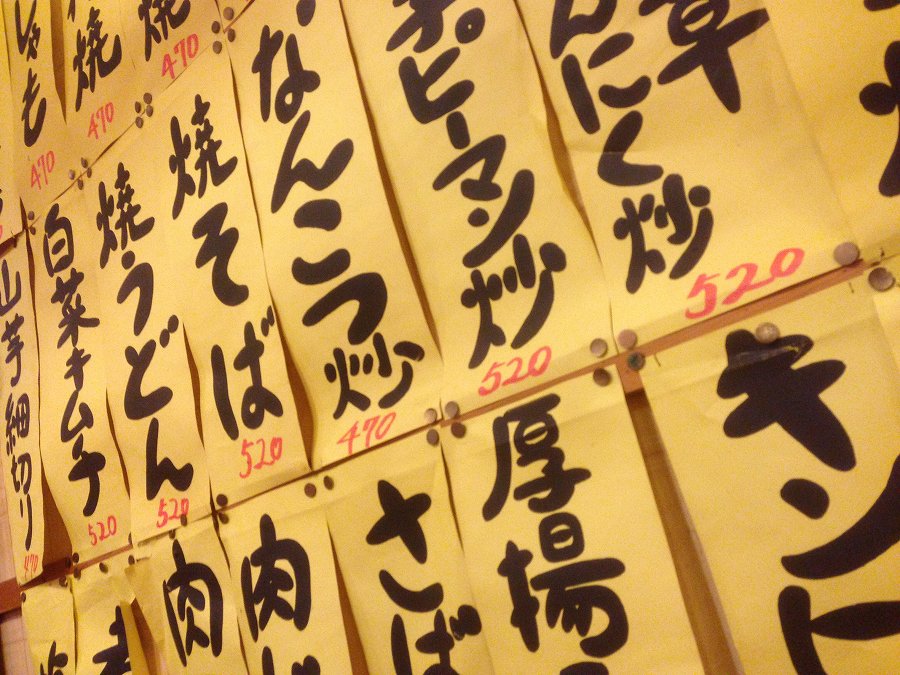 しゃも
470
焼
470
焼
470
なんこつ炒
470
ピーマン炒
520
んにく炒
520
山芋細切り
470
白菜キムチ
520
焼うどん
520
焼そば
520
肉
肉
さば
厚揚
キント